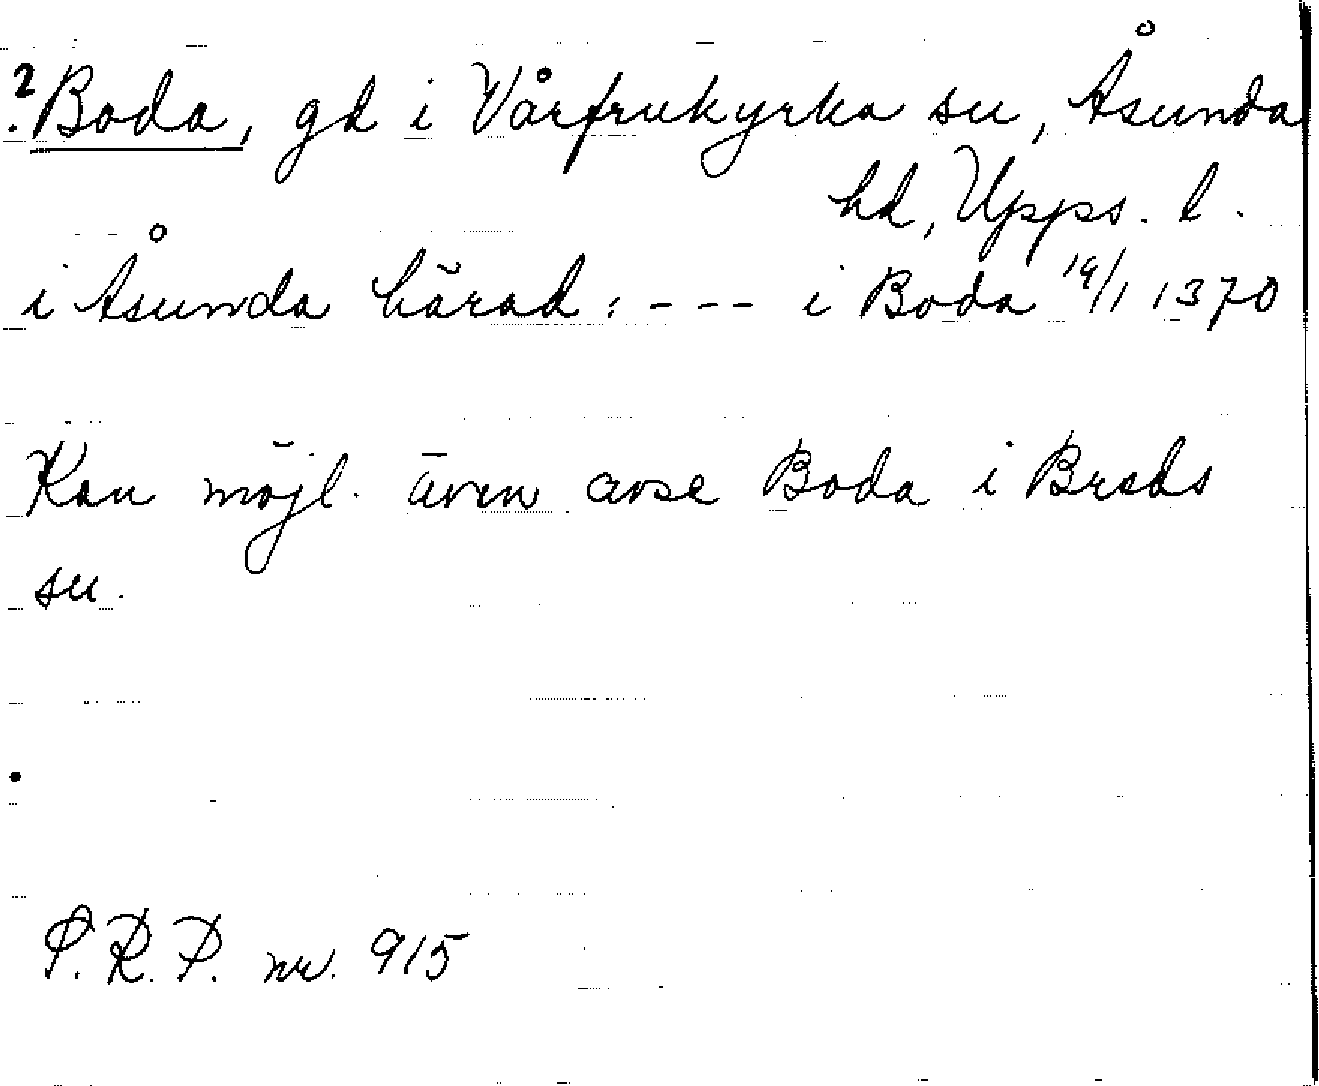 ? Boda, gd i Vårfrukyrka sn, Åsunda
hd, Upps. l.
i Åsunda härad: --- i Boda 19/1 1370
Kan möjl. även avse Boda i Breds
sn.
S.R.P. nr. 915